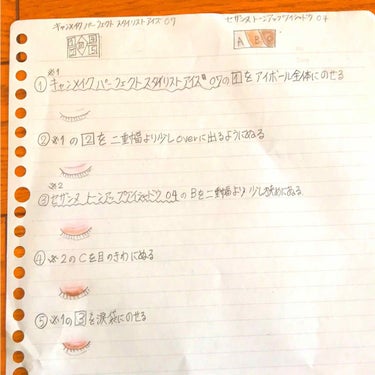 キャンメイク パーフェクト スタイリストアイズ 07
セザンヌ トーンアップアイシャドウ 04
A B C
※1
① キャンメイク パーフェクトスタイリストアイズ 07の1をアイホール全体にのせる
② ※1の2を二重幅より少しoverに出るようにぬる
※2
③ セザンヌ トーンアップアイシャドウ 04のBを二重幅より少し狭めにぬる
④ ※2のCを目のきわにぬる
⑤ ※1の3を涙袋にのせる